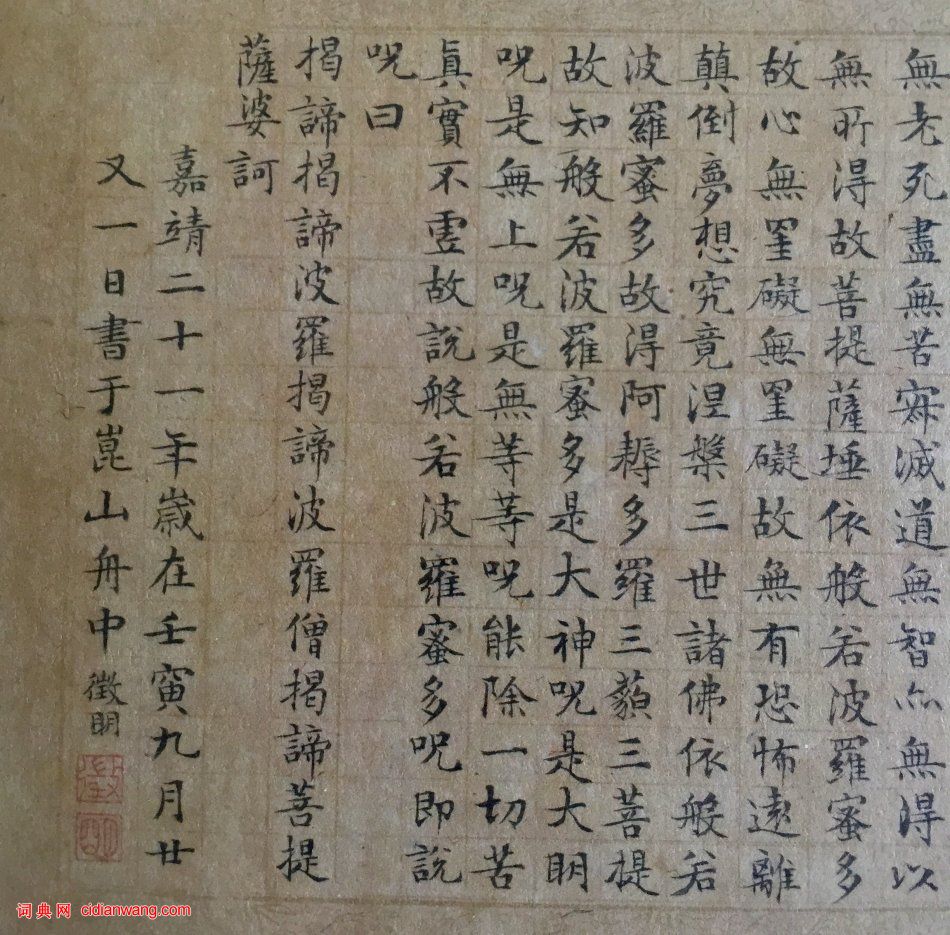 無老死盡無苦㝛滅道無智亦無得以
無所得故菩提薩埵依般若波羅蜜多
故心無罣礙無罣礙故無有恐怖遠離
顛倒夢想究竟涅槃三世諸佛依般若
波羅蜜多故得阿耨多羅三藐三菩提
故知般若波羅蜜多是大神呪是大明
呪是無上呪是無等等呪能除一切苦
真實不虛故說般若波羅蜜多呪即說
呪曰
揭諦揭諦波羅揭諦波羅僧揭諦菩提
薩婆訶
嘉靖二十一年歲在壬寅九月廿
又一日書于崑山舟中 徵明
徵
明
词典网 cidianwang.com